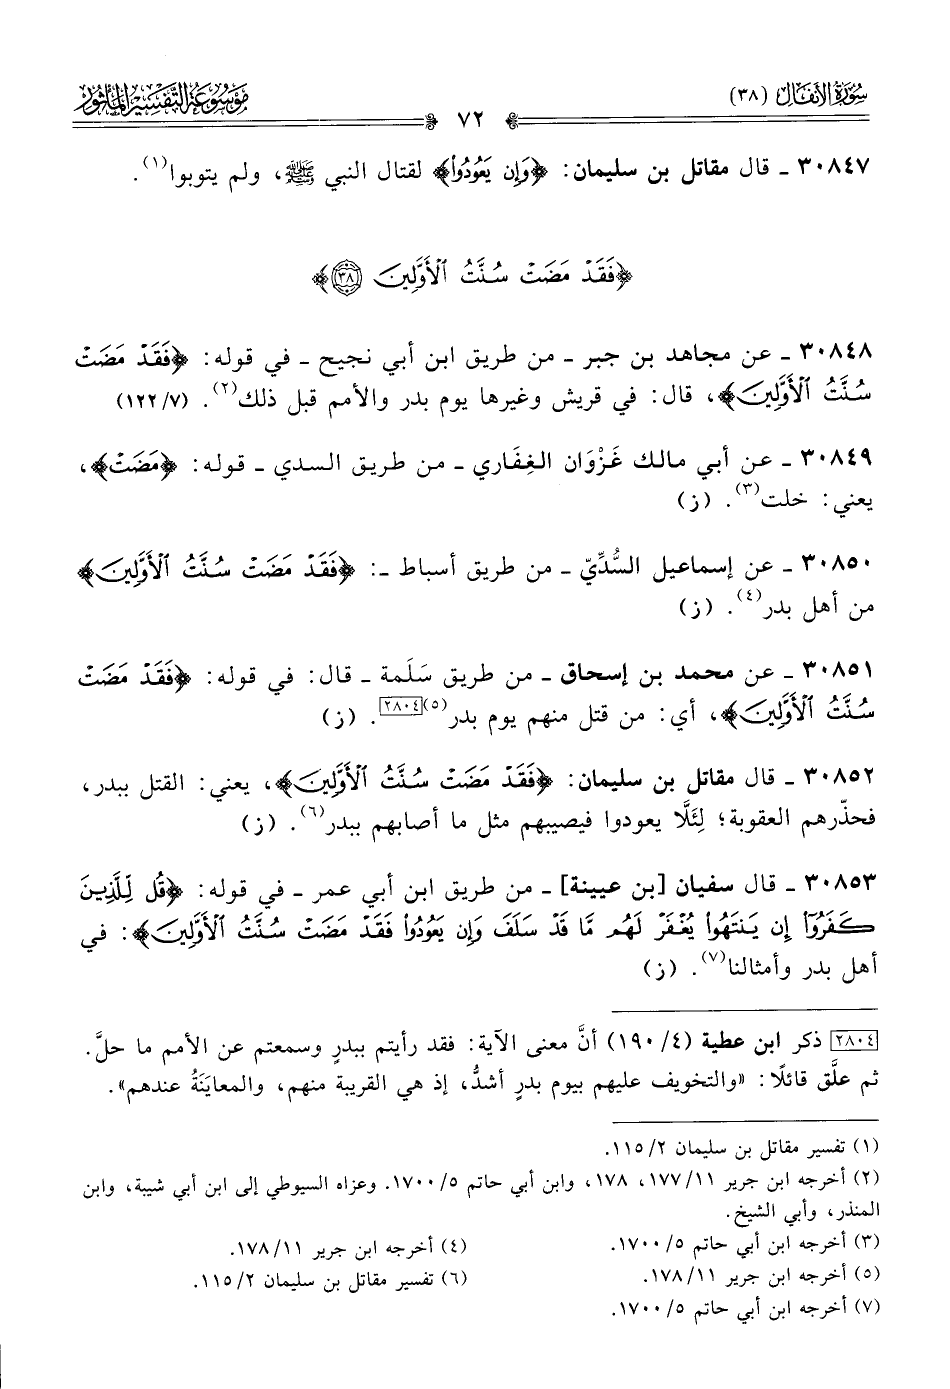 سُورَةُ الأَنفَال (٣٨)
٧٢
مَوْسُوعَة التَّفْسِير المَأْثُور
٣٠٨٤٧ ـ قال مقاتل بن سليمان: ﴿وَإِن يَعُودُواْ﴾ لقتال النبي ﷺ، ولم يتوبوا(١).
﴿فَقَدْ مَضَتْ سُنَّتُ الْأَوَّلِينَ ٣٨﴾
٣٠٨٤٨ ـ عن مجاهد بن جبر ـ من طريق ابن أبي نجيح ـ في قوله: ﴿فَقَدْ مَضَتْ
سُنَّتُ الْأَوَّلِينَ﴾، قال: في قريش وغيرها يوم بدر والأمم قبل ذلك(٢). (٧/١٢٢)
٣٠٨٤٩ ـ عن أبي مالك غَزْوَان الغِفَاري ـ من طريق السدي ـ قوله: ﴿مَضَتْ﴾،
يعني: خلت(٣). (ز)
٣٠٨٥٠ ـ عن إسماعيل السُّدِّيّ ـ من طريق أسباط ـ: ﴿فَقَدْ مَضَتْ سُنَّتُ الْأَوَّلِينَ﴾
من أهل بدر(٤). (ز)
٣٠٨٥١ ـ عن محمد بن إسحاق ـ من طريق سَلَمة ـ قال: في قوله: ﴿فَقَدْ مَضَتْ
سُنَّتُ الْأَوَّلِينَ﴾، أي: من قتل منهم يوم بدر(٥)[٢٨٠٤]. (ز)
٣٠٨٥٢ ـ قال مقاتل بن سليمان: ﴿فَقَدْ مَضَتْ سُنَّتُ الْأَوَّلِينَ﴾، يعني: القتل ببدر،
فحذّرهم العقوبة؛ لِئَلَّا يعودوا فيصيبهم مثل ما أصابهم ببدر(٦). (ز)
٣٠٨٥٣ ـ قال سفيان [بن عيينة] ـ من طريق ابن أبي عمر ـ في قوله: ﴿قُل لِّلَّذِينَ
كَفَرُوٓاْ إِن يَنتَهُواْ يُغْفَرْ لَهُم مَّا قَدْ سَلَفَ وَإِن يَعُودُواْ فَقَدْ مَضَتْ سُنَّتُ الْأَوَّلِينَ﴾: في
أهل بدر وأمثالنا(٧). (ز)
[٢٨٠٤] ذكر ابن عطية (٤/١٩٠) أنَّ معنى الآية: فقد رأيتم ببدرٍ وسمعتم عن الأمم ما حلَّ.
ثم علَّق قائلًا: «والتخويف عليهم بيوم بدرٍ أشدُّ، إذ هي القريبة منهم، والمعاينَةُ عندهم».
(١) تفسير مقاتل بن سليمان ٢/١١٥.
(٢) أخرجه ابن جرير ١١/١٧٧، ١٧٨، وابن أبي حاتم ٥/١٧٠٠. وعزاه السيوطي إلى ابن أبي شيبة، وابن
المنذر، وأبي الشيخ.
(٣) أخرجه ابن أبي حاتم ٥/١٧٠٠.
(٤) أخرجه ابن جرير ١١/١٧٨.
(٥) أخرجه ابن جرير ١١/١٧٨.
(٦) تفسير مقاتل بن سليمان ٢/١١٥.
(٧) أخرجه ابن أبي حاتم ٥/١٧٠٠.